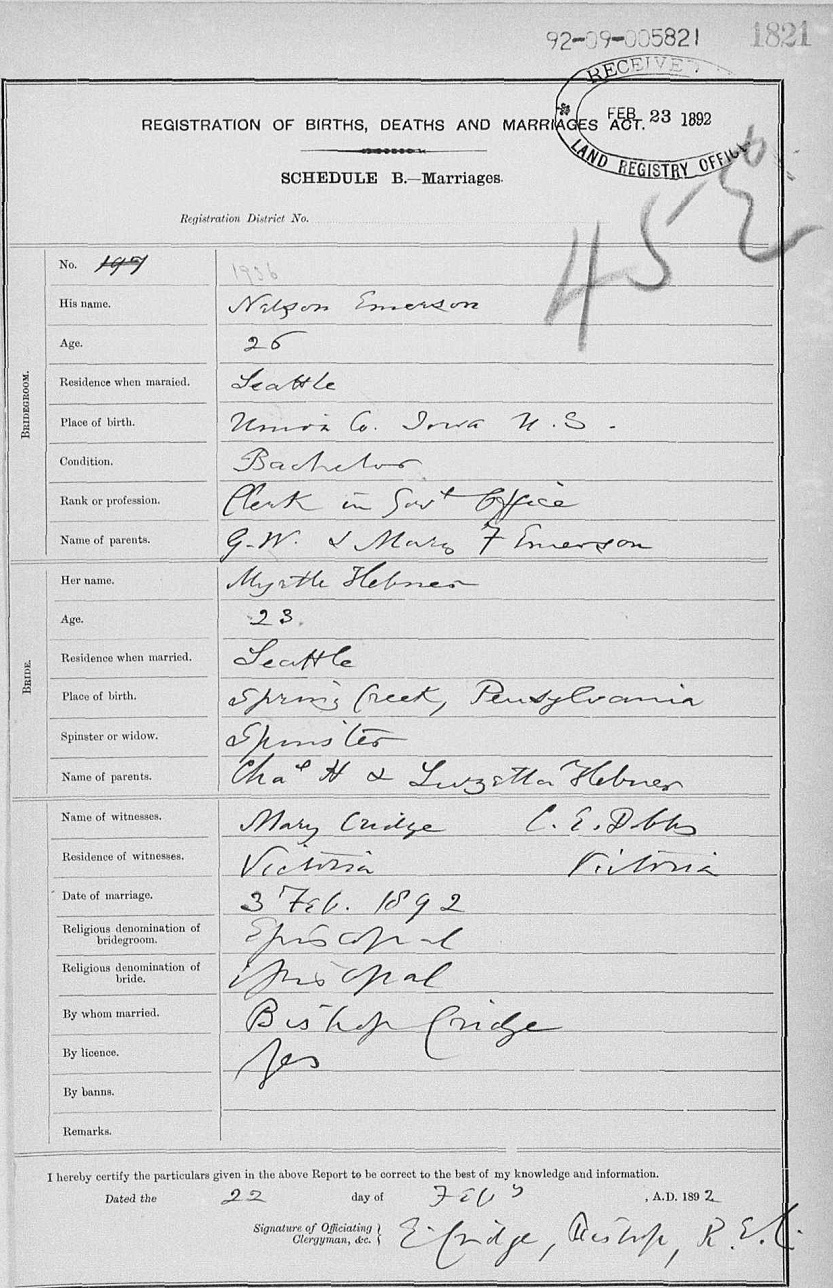 92-09-005821 1821
RECEIVED
FEB. 23 1892
LAND REGISTRY OFFICE
REGISTRATION OF BIRTHS, DEATHS AND MARRIAGES ACT.
SCHEDULE B.—Marriages.
Registration District No.
452
No. 197 1956
BRIDEGROOM.
His name. Nelson Emerson
Age. 26
Residence when maraied. Seattle
Place of birth. Union Co. Iowa U.S.
Condition. Bachelor
Rank or profession. Clerk in Govt Office
Name of parents. G.W. & Mary F Emerson
BRIDE.
Her name. Myrtle Hebner
Age. 23.
Residence when married. Seattle
Place of birth. Spring Creek, Pensylvania
Spinster or widow. Spinster
Name of parents. Chas H & Luzetta Hebner
Name of witnesses. Mary Cridge C. E. Dobbs
Residence of witnesses. Victoria Victoria
Date of marriage. 3 Feb. 1892
Religious denomination of
bridegroom. Episcopal
Religious denomination of
bride. Episcopal
By whom married. Bishop Cridge
By licence. Yes
By banns.
Remarks.
I hereby certify the particulars given in the above Report to be correct to the best of my knowledge and information.
Dated the 22 day of Feby , A.D. 1892
Signature of Officiating
Clergyman, &c. E. Cridge, Bishop, R.E.C.